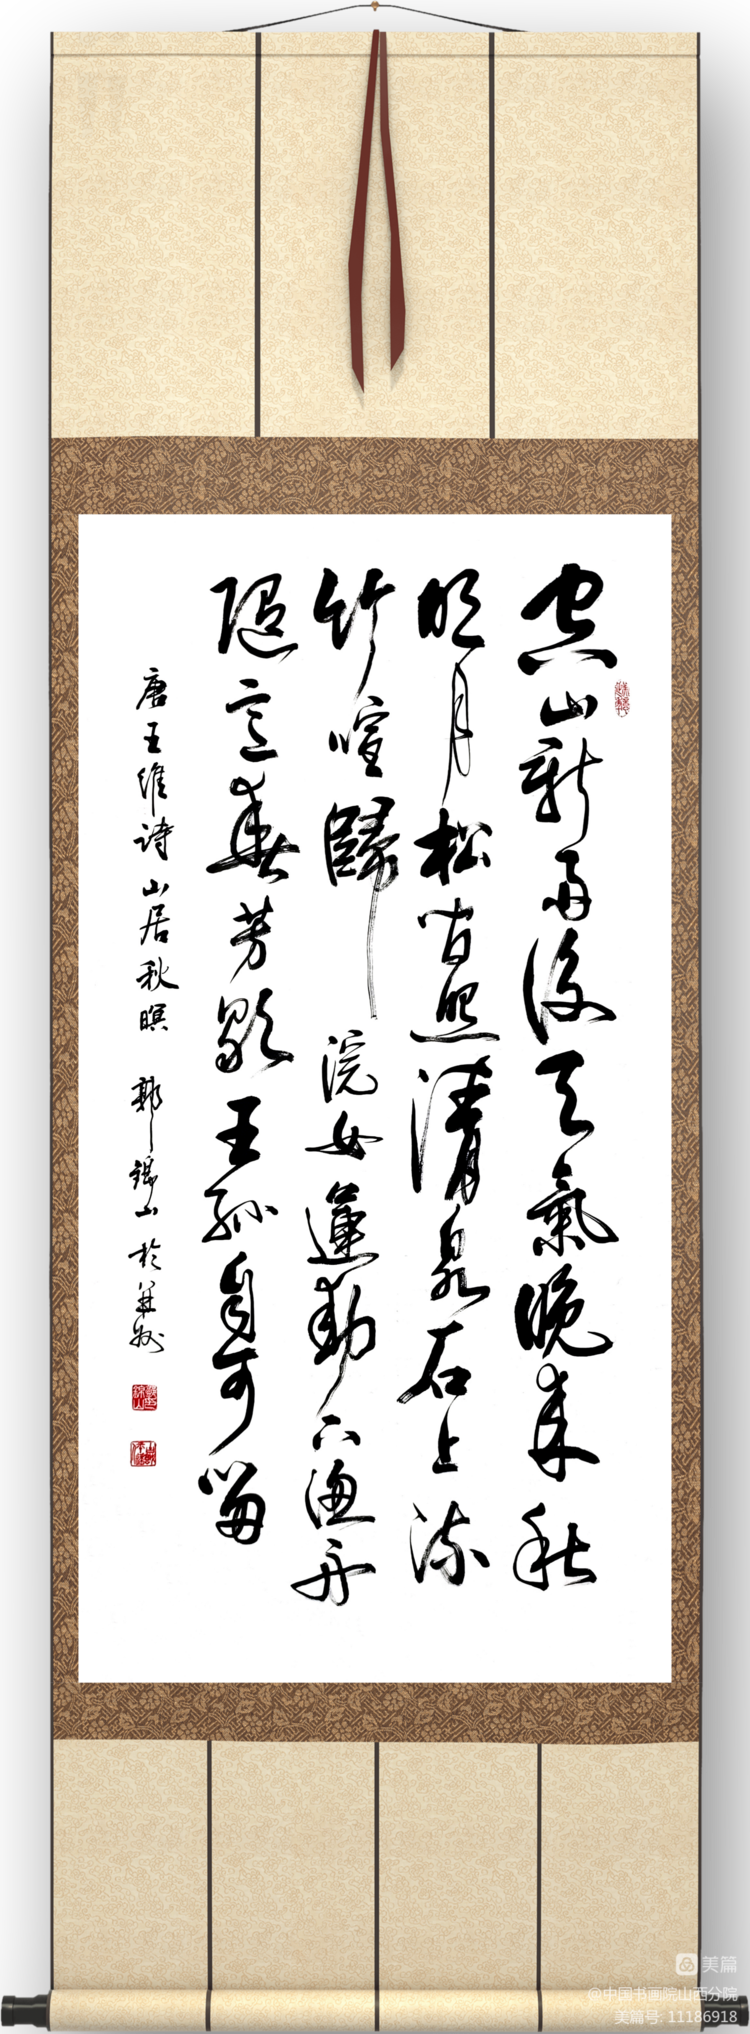 空山新雨後天氣晚来秋
明月松间照清泉石上流
竹喧歸浣女蓮動下漁舟
隨意春芳歇王孫自可留
唐王維诗山居秋暝 郭錦山於并州
美篇
@中国书画院山西分院
美篇号: 11186918